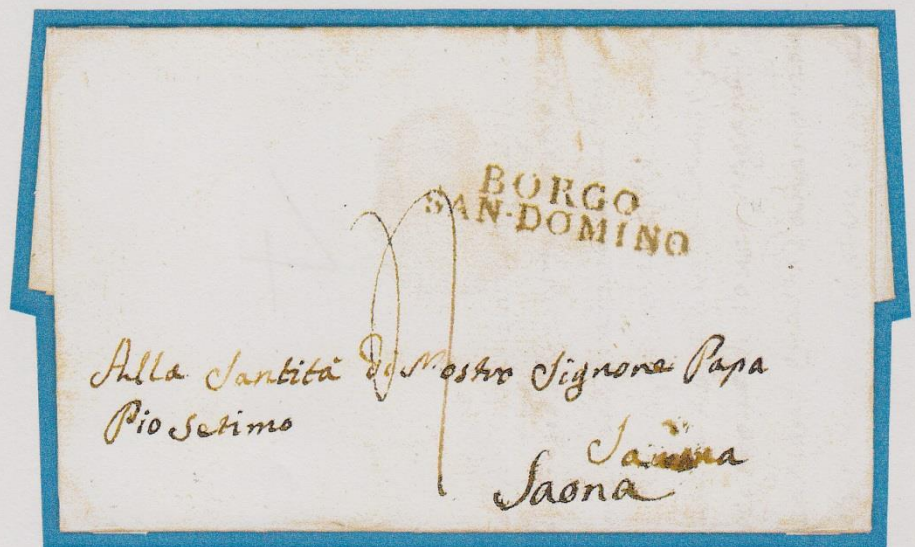 BORGO
SAN-DOMINO
Alla Santità di Nostro Signore Papa
Pio Setimo
Saona